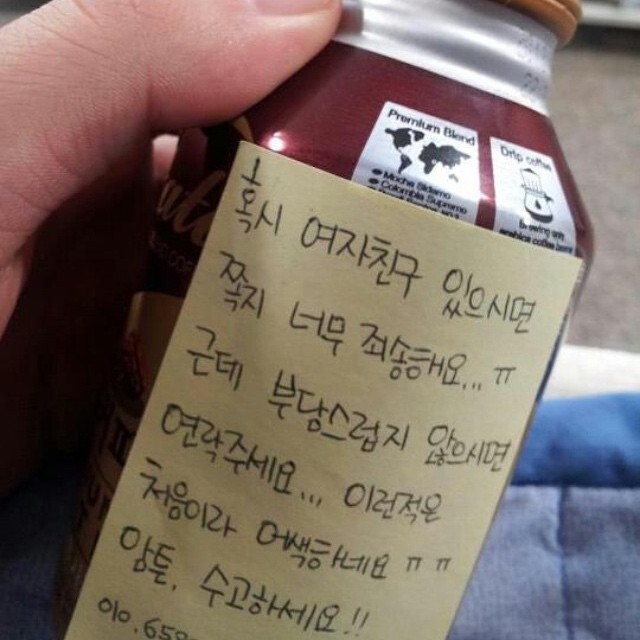 Premium Blend
Mocha Sidamo
Colombia Supremo
Drip coffee
Brewing with
arabica coffee beans
혹시 여자친구 있으시면
쪽지 너무 죄송해요... ㅠ
근데 부담스럽지 않으시면
연락주세요... 이런적은
처음이라 어색하네요 ㅠㅠ
암튼, 수고하세요!!